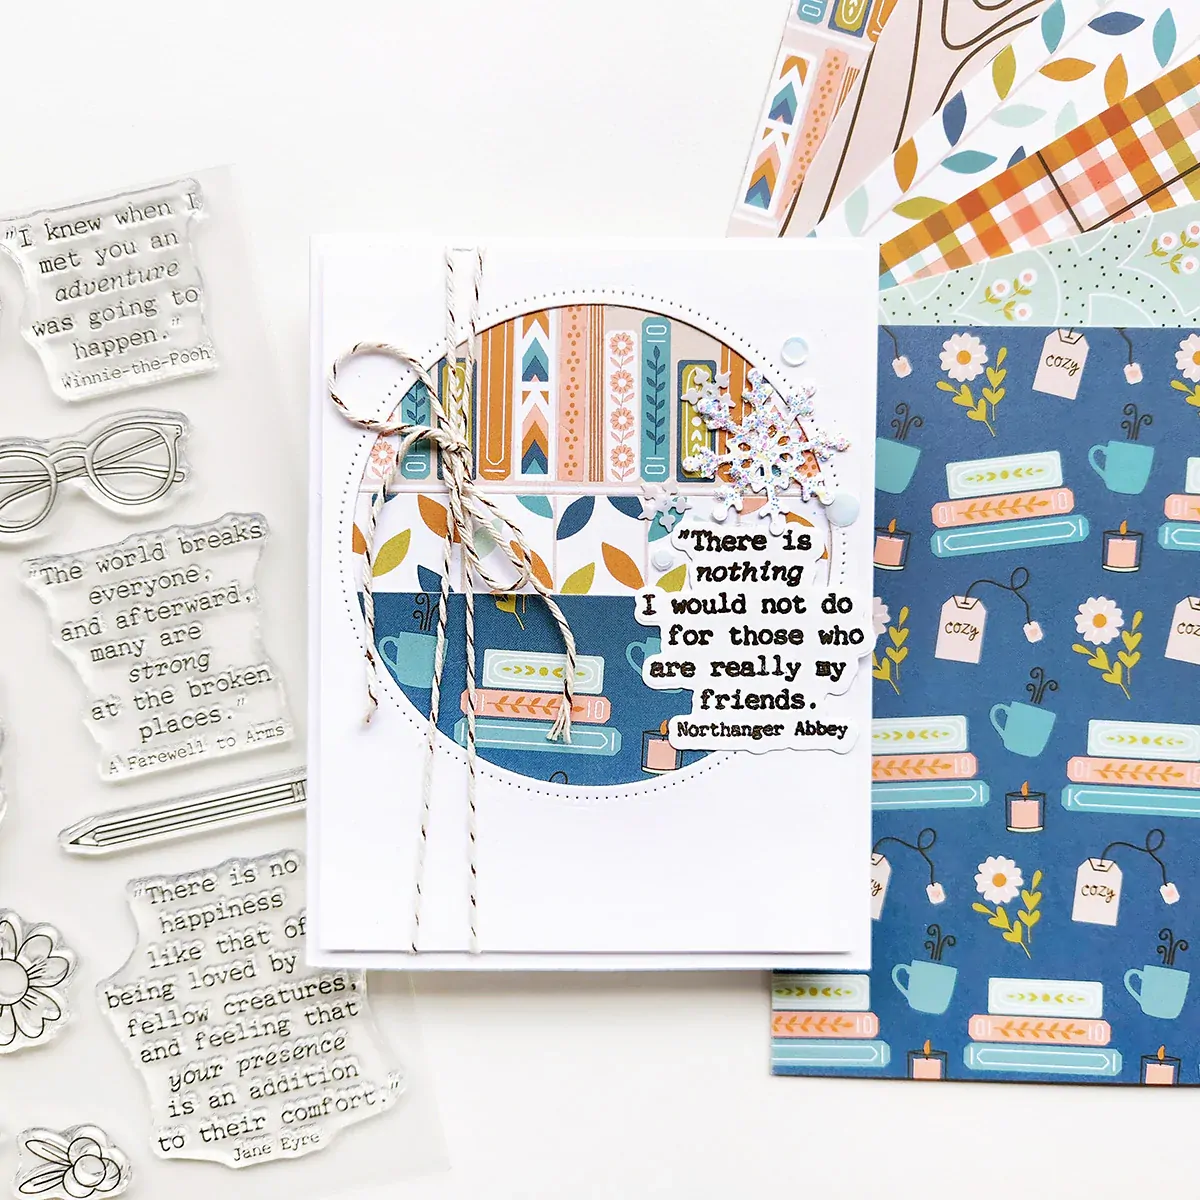 "I knew when I
met you an
adventure
was going to
happen."
Winnie-the-Pooh
"The world breaks
everyone,
and afterward,
many are
strong
at the broken
places."
A Farewell to Arms
"There is no
happiness
like that of
being loved by
fellow creatures,
and feeling that
your presence
is an addition
to their comfort."
Jane Eyre
"There is
nothing
I would not do
for those who
are really my
friends.
Northanger Abbey
cozy
cozy
cozy
cozy